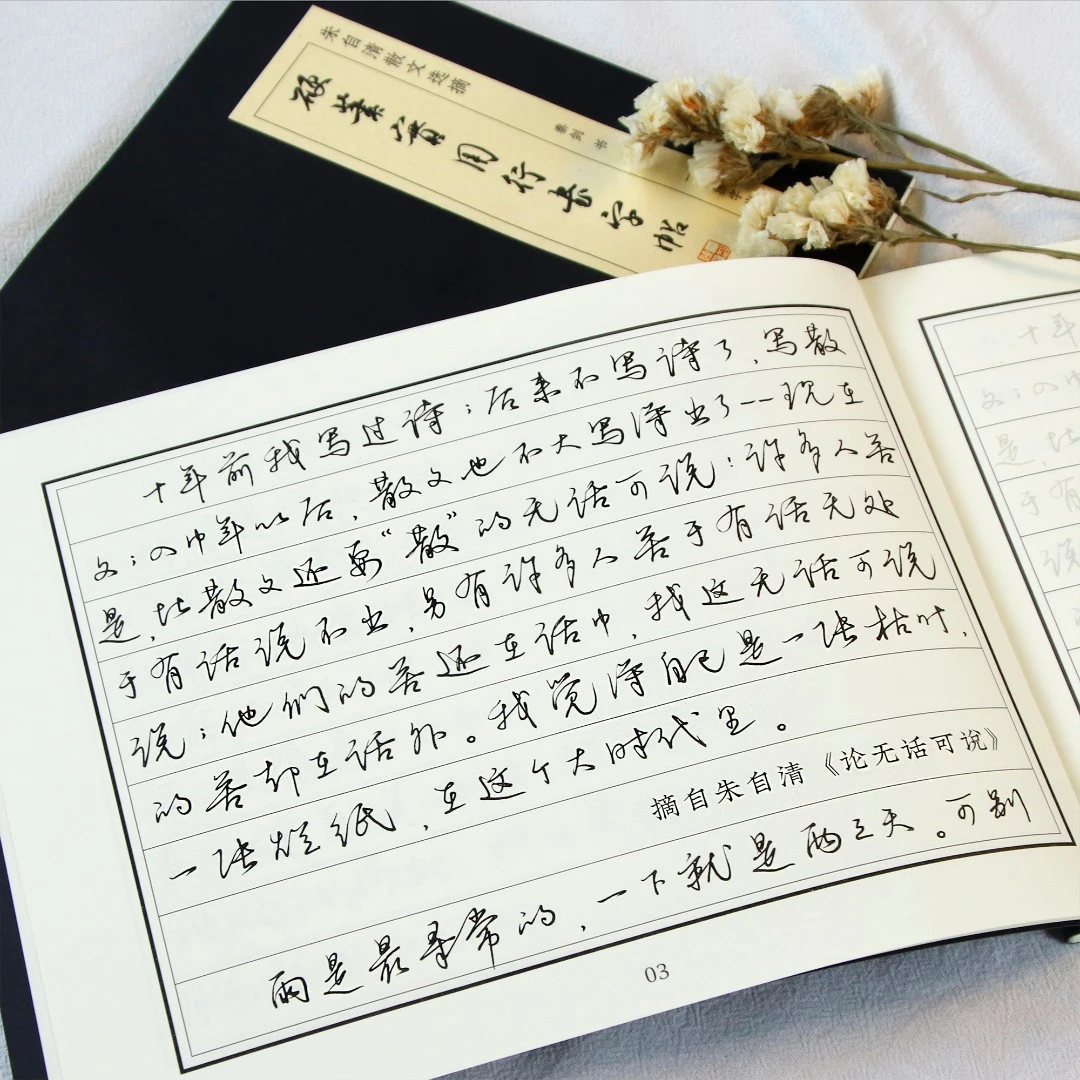 朱自清散文选摘
硬筆實用行書字帖
秦剑 书
十年前我写过诗；后来不写诗了，写散
文；入中年以后，散文也不大写得出了--现在
是，比散文还要“散”的无话可说！许多人苦
于有话说不出，另有许多人苦于有话无处
说；他们的苦还在话中，我这无话可说
的苦却在话外。我觉得自己是一张枯叶，
一张烂纸，在这个大时代里。
摘自朱自清《论无话可说》
雨是最寻常的，一下就是两三天。可别
03
十年
文；入中
是，比
于有
说